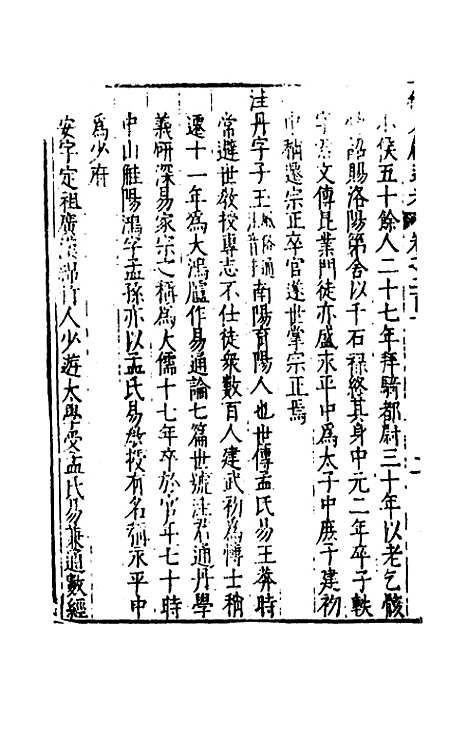 小侯五十餘人二十七年拜騎都尉三十年以老乞骸
詔賜洛陽第舍以千石祿終其身中元二年卒子軼
字君文傳昆業門徒亦盛永平中為太子中庶子建初
中稍遷宗正卒官遂世掌宗正焉
洼丹字子玉風俗通南陽育陽人也世傳孟氏易王莽時
常避世教授專志不仕徒衆數百人建武初為博士稍
遷十一年為大鴻臚作易通論七篇世號洼君通丹學
義研深易家宗之稱為大儒十七年卒於官年七十時
中山觟陽鴻字孟孫亦以孟氏易教授有名稱永平中
為少府
安字定祖廣漢綿竹人少遊太學受孟氏易兼通數經